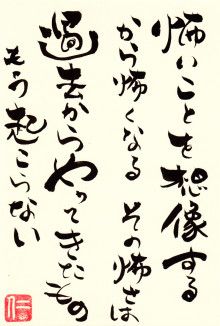 怖いことを想像する
から怖くなる その怖さは
過去からやってきたもの
もう起こらない
仁